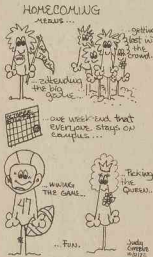 HOMECOMING
MEANS...
...getting
lost in
the
crowd.
...attending
the big
game...
...ONE WEEKEND that
EVERYONE stays on
campus...
...WINNING
THE GAME...
...Picking
the
QUEEN...
...FUN.
Judy